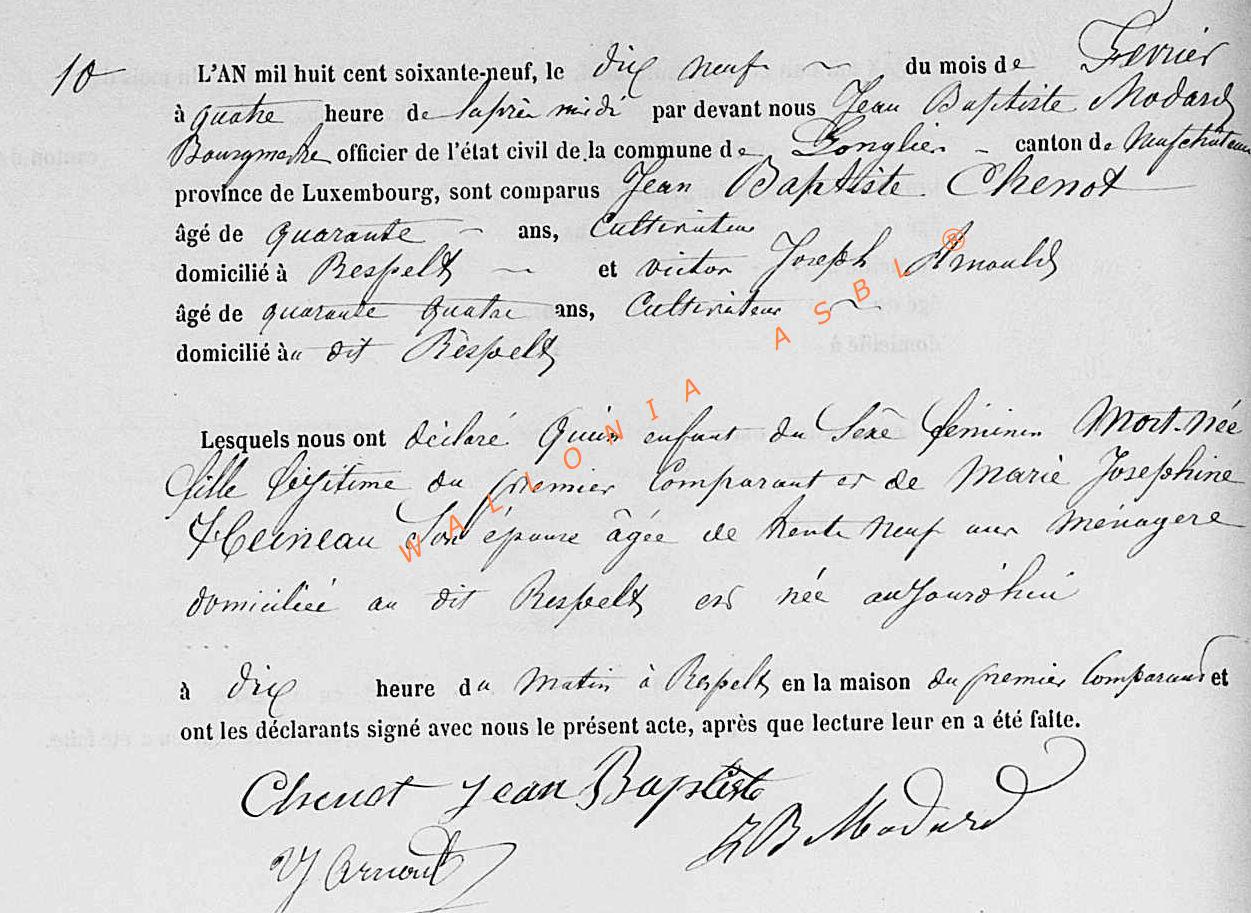 10 L'AN mil huit cent soixante-neuf, le dix neuf du mois de Fevrier
à quatre heure de laprès midi par devant nous Jean Baptiste Modard
Bourgmestre officier de l'état civil de la commune de Longlier canton de Neufchateau
province de Luxembourg, sont comparus Jean Baptiste Chenot
âgé de quarante ans, Cultivateur
domicilié à Respelt et victor Joseph Arnould
âgé de quarante quatre ans, Cultivateur
domicilié au dit Respelt
Lesquels nous ont déclaré qu'un enfant du Sexe féminin Mort-née
fille légitime du premier Comparant et de Marie Josephine
Herneau Son épouse âgée de trente neuf ans ménagère
domiciliée au dit Respelt est née aujourd'hui
à dix heure du matin à Respelt en la maison du premier Comparant et
ont les déclarants signé avec nous le présent acte, après que lecture leur en a été faite.
Chenot Jean Baptiste
JB Modard
VJ Arnould
WALLONIA ASBL ®